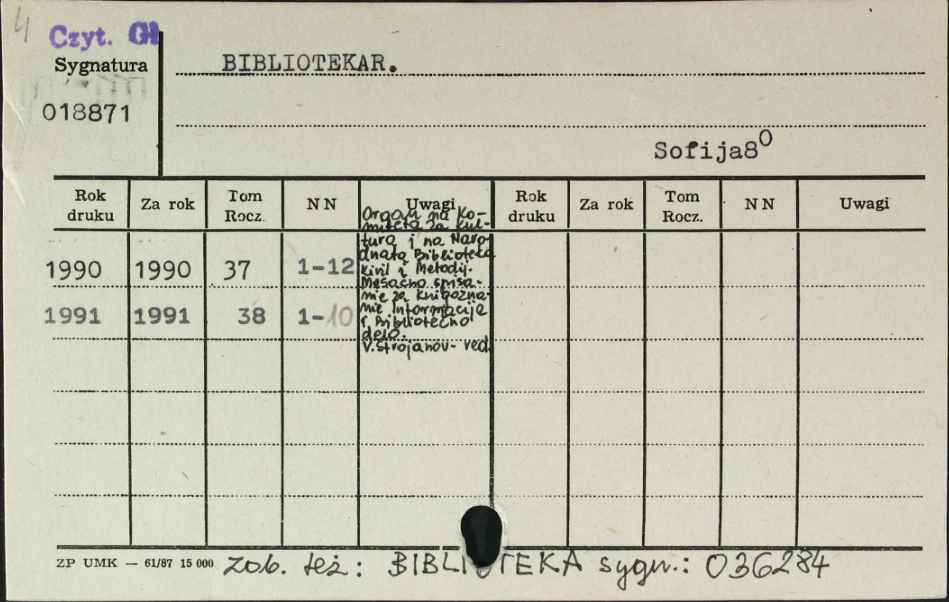 4
Czyt. Gł
Sygnatura
BIBLIOTEKAR.
018871
Sofija8⁰
Rok druku Za rok Tom Rocz. NN Uwagi Rok druku Za rok Tom Rocz. NN Uwagi
Organ na Ko-
miteta za kul-
tura i na Naro-
dnata Biblioteka
Kiril i Metodij.
Mesačno spisa-
nie za knigozna-
nie informacija
i Bibliotečno
delo.
V. Strojanov - red.
1990 1990 37 1-12
1991 1991 38 1-10
ZP UMK — 61/87 15 000
Zob. też: BIBLIOTEKA sygn.: 036284